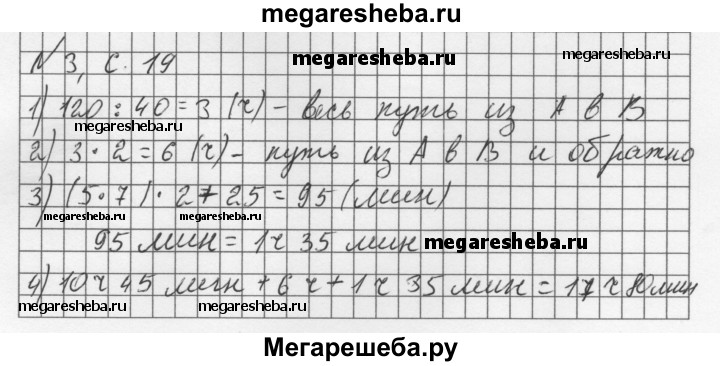 megaresheba.ru
№ 3, с. 19 megaresheba.ru megaresheba.ru
1) 120 : 40 = 3 (ч) - весь путь из А в В
megaresheba.ru megaresheba.ru
2) 3 · 2 = 6 (ч) - путь из А в В и обратно
3) (5 · 7) · 2 + 25 = 95 (мин)
megaresheba.ru megaresheba.ru megaresheba.ru
95 мин = 1 ч 35 мин megaresheba.ru
4) 10 ч 45 мин + 6 ч + 1 ч 35 мин = 17 ч 80 мин
megaresheba.ru megaresheba.ru megaresheba.ru
Мегарешеба.ру